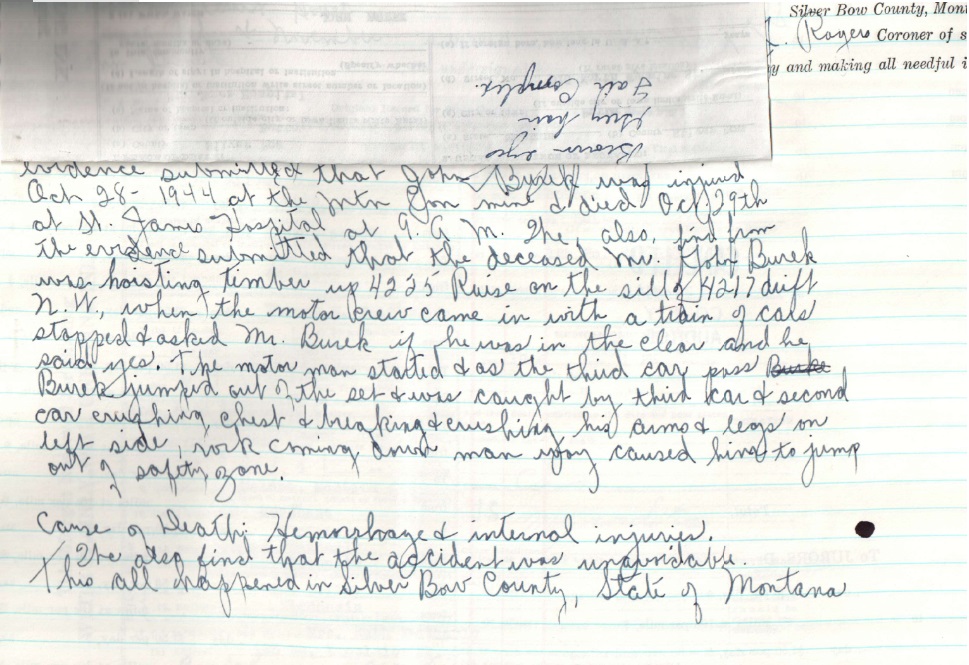 Silver Bow County, Mon
Rogers Coroner of s
y and making all needful i
Brown eyes
Grey hair
Fair Complex.
evidence submitted that John Burek was injured
Oct 28 - 1944 at the Mtn Con mine & died Oct 29th
at St. James Hospital at 9. A M. We, also, find from
the evidence submitted that the deceased Mr. John Burek
was hoisting timber up 4225 Raise on the sill of 4217 drift
N.W., when the motor crew came in with a train of cars
stopped & asked Mr. Burek if he was in the clear and he
said yes. The motor man started & as the third car pass
Burek jumped out of the set & was caught by third car & second
car crushing chest & breaking & crushing his arms & legs on
left side, rock coming down man way caused him to jump
out of safety zone.
Cause of Death; Hemorrhage & internal injuries.
We also find that the accident was unavoidable.
This all happened in Silver Bow County, State of Montana